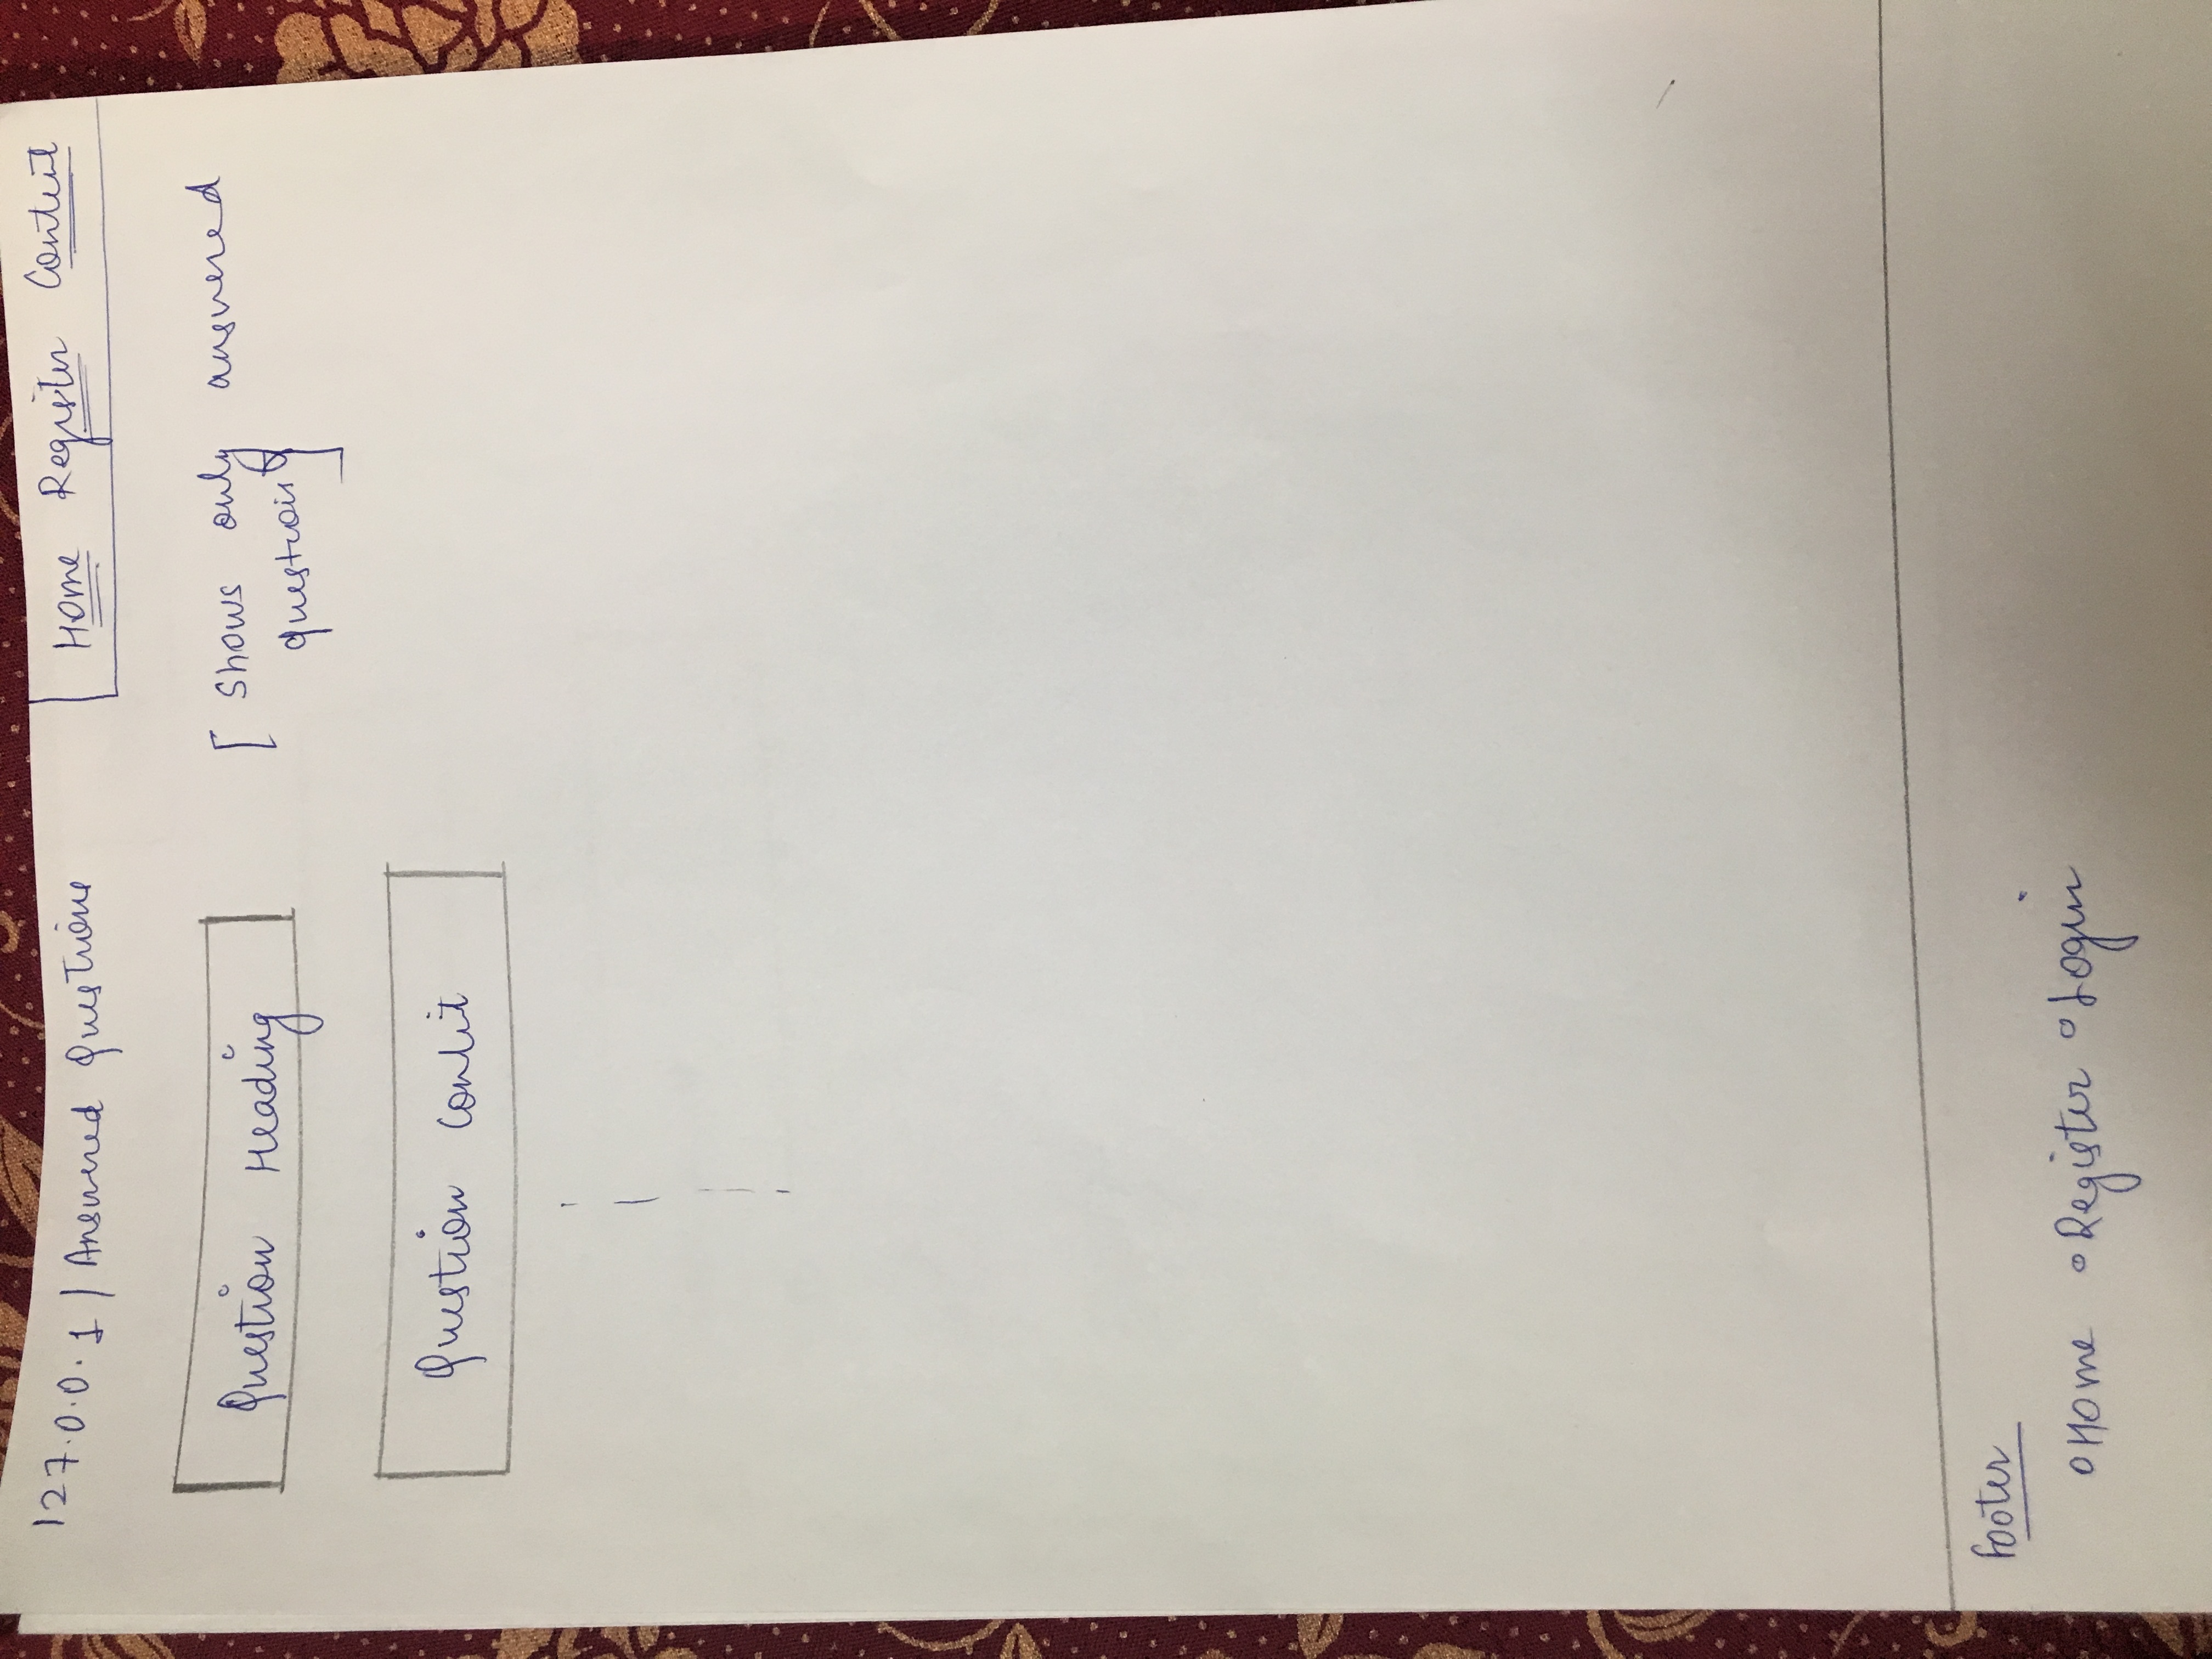 127.0.0.1 | Answered Questions
Home Register Content
Question Heading
[ Shows only answered
questions ]
Question Content
Footer
o Home o Register o Login